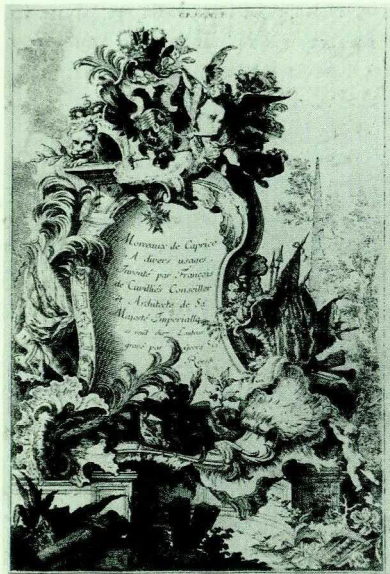 Morceaux de Caprice
A divers usages
Inventé par François
de Cuvilliés Conseiller
et Architecte de Sa
Majesté Imperialle
se vend chez l'auteur
gravé par